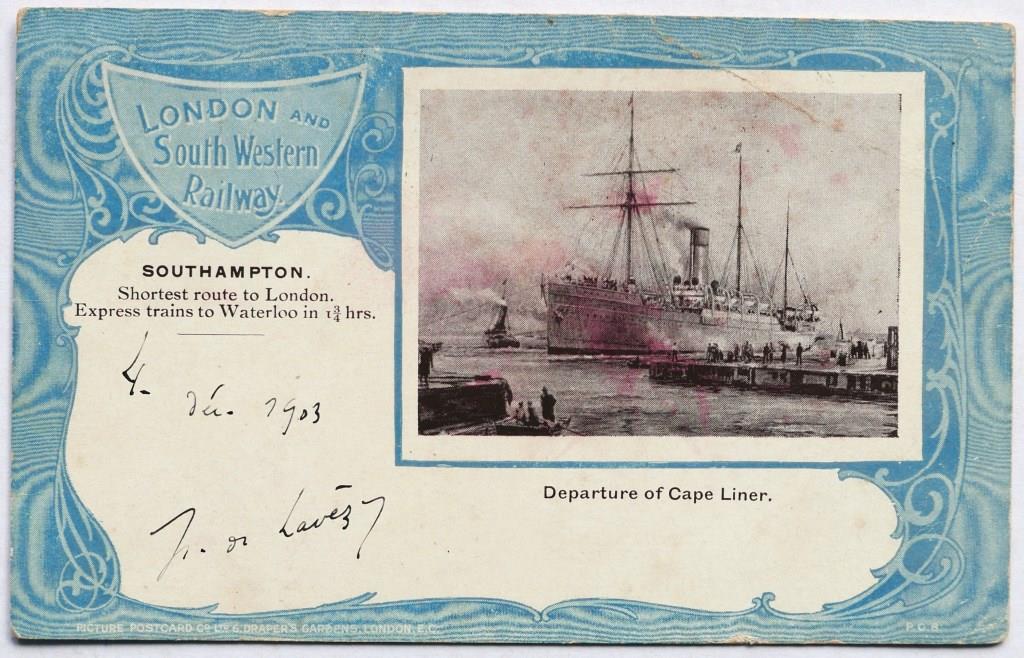 LONDON AND
South Western
Railway.
SOUTHAMPTON.
Shortest route to London.
Express trains to Waterloo in 1¾ hrs.
4.
déc. 1903
Departure of Cape Liner.
PICTURE POSTCARD Co Ld 6, DRAPER'S GARDENS, LONDON, E.C.
P.C. 8